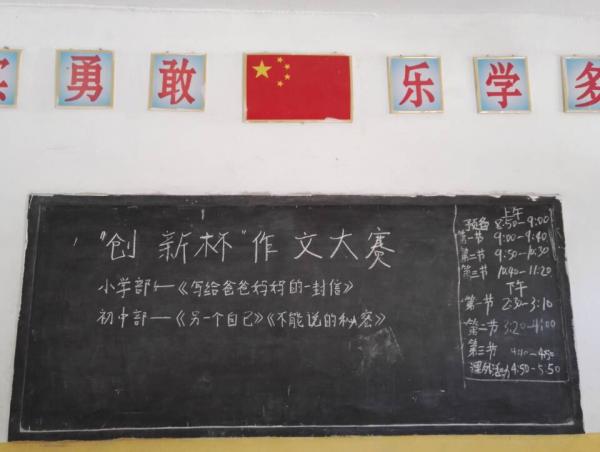 实 勇 敢 乐 学 多
"创 新杯"作文大赛
小学部——《写给爸爸妈妈的一封信》
初中部——《另一个自己》《不能说的秘密》
上午
预备 8:50-9:00
第一节 9:00-9:40
第二节 9:50-10:30
第三节 10:40-11:20
下午
第一节 2:30-3:10
第二节 3:20-4:00
第三节 4:10-4:50
课外活动 4:50-5:50